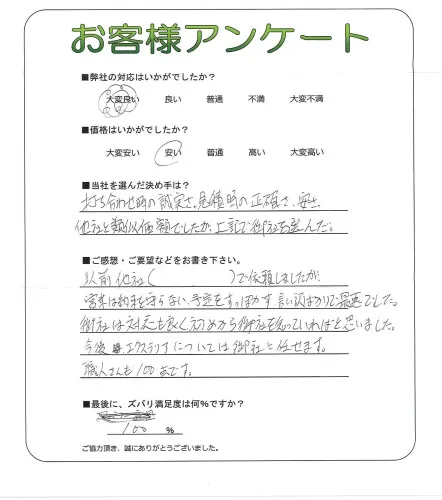 お客様アンケート
■弊社の対応はいかがでしたか?
大変良い 良い 普通 不満 大変不満
■価格はいかがでしたか?
大変安い 安い 普通 高い 大変高い
■当社を選んだ決め手は?
打ち合わせ時の誠実さ、見積時の正確さ、安さ、
他社と類似価額でしたが、上記で御社を選んだ。
■ご感想・ご要望などをお書き下さい。
以前他社( )で依頼しましたが、
営業は約束を守らない、予定をすっぽかす、言い訳ばかりで最悪でした。
御社は対応も良く初めから御社を知っていればと思いました。
今後 エクステリアについては御社に任せます。
職人さんも100点です。
■最後に、ズバリ満足度は何%ですか?
100 %
ご協力頂き、誠にありがとうございました。